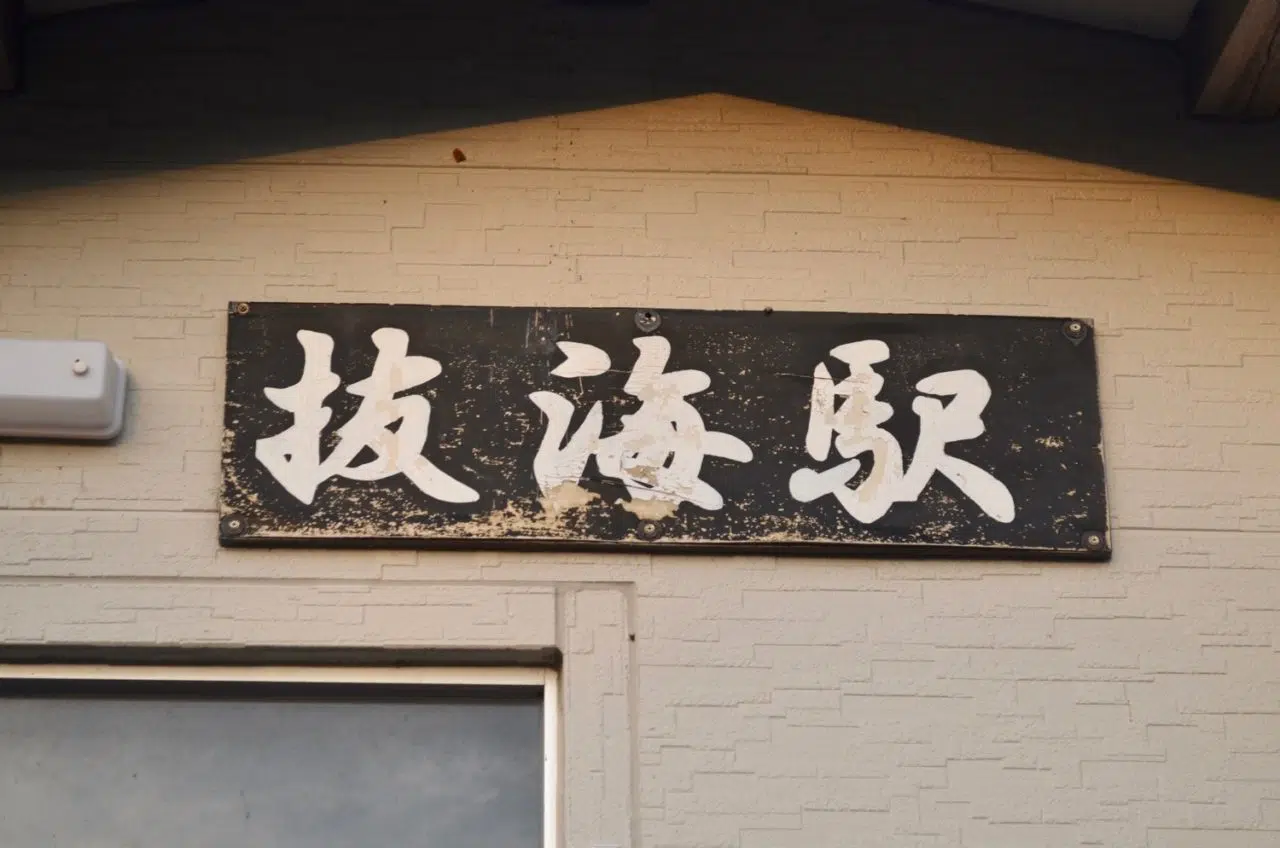 抜海駅